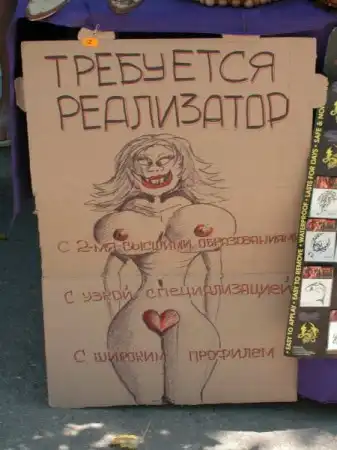 ТРЕБУЕТСЯ
РЕАЛИЗАТОР
С 2-МЯ ВЫСШИМИ ОБРАЗОВАНИЯМИ
С УЗКОЙ СПЕЦИАЛИЗАЦИЕЙ
С ШИРОКИМ ПРОФИЛЕМ
• EASY TO APPLAY • EASY TO REMOVE • WATERPROOF • LASTS FOR DAYS • SAFE & NON